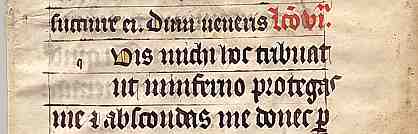 succurre ei. Dum ueneris lc̄o vi.
q Vis michi hoc tribuat
ut in inferno protegas
me ⁊ abscondas me donec p